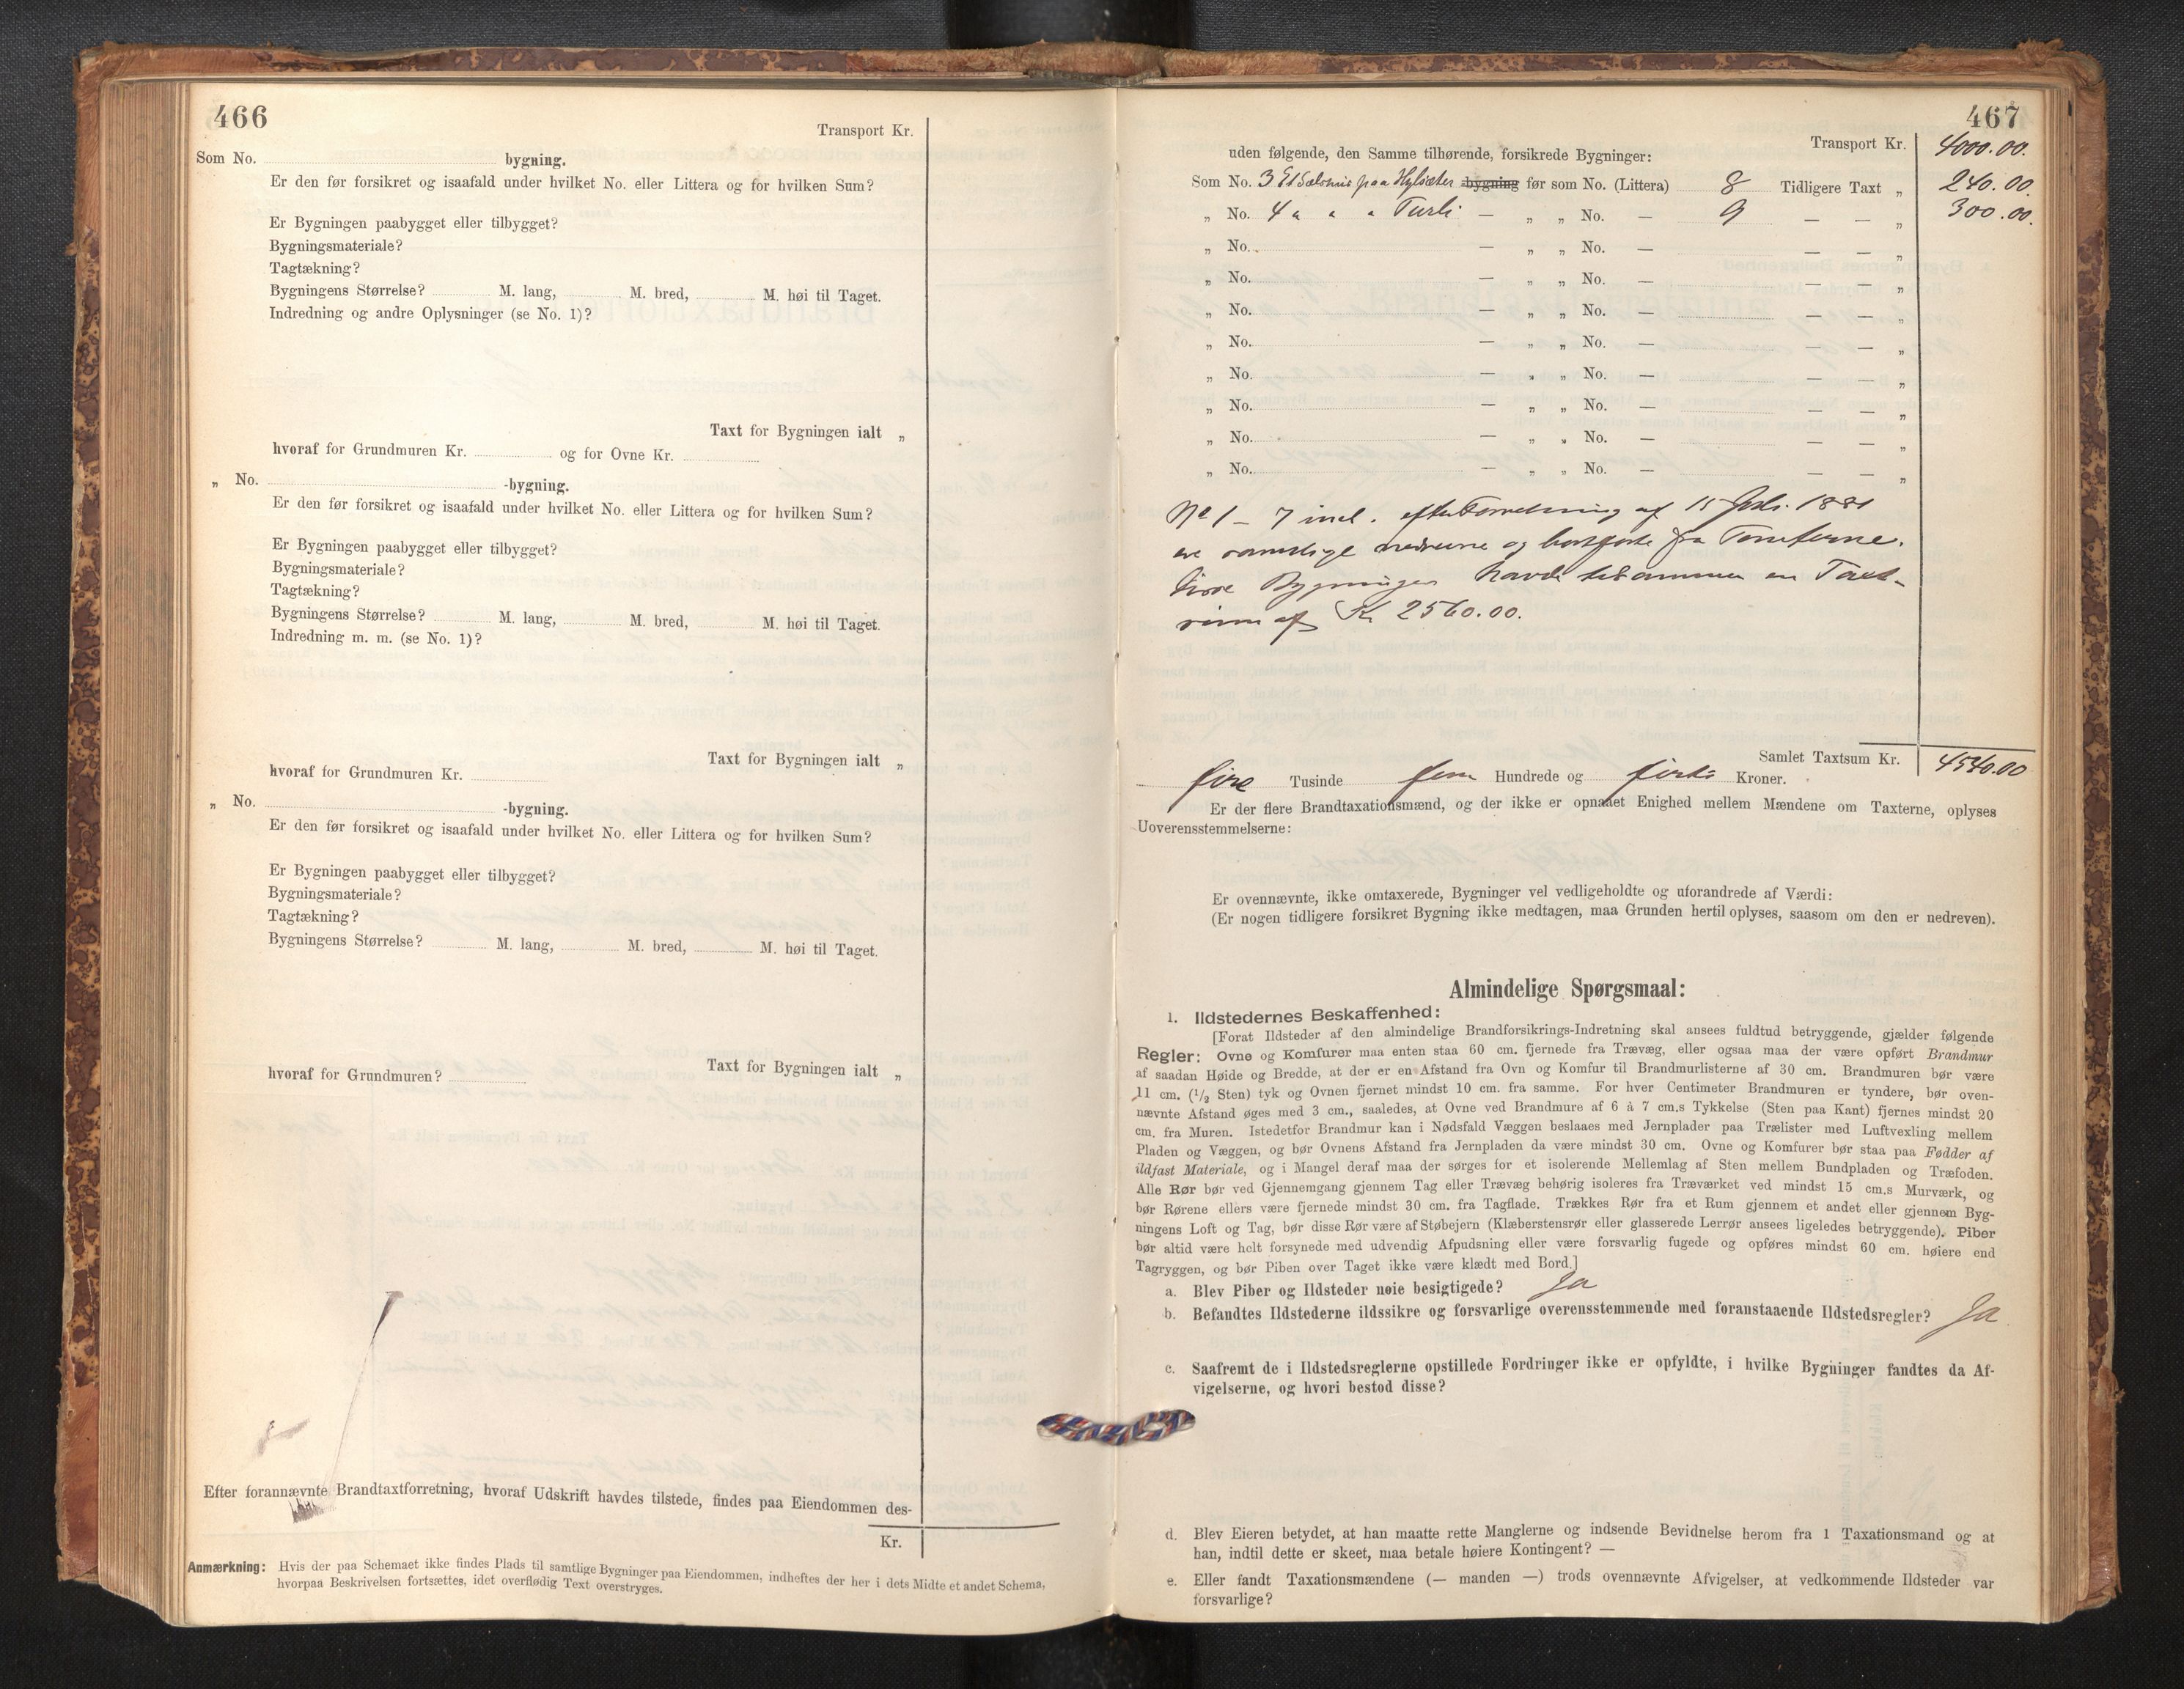 466
Transport Kr.
Som No. bygning.
Er den før forsikret og isaafald under hvilket No. eller Littera og for hvilken Sum?
Er Bygningen paabygget eller tilbygget?
Bygningsmateriale?
Tagtækning?
Bygningens Størrelse? M. lang, M. bred, M. høi til Taget.
Indredning og andre Oplysninger (se No. 1)?
Taxt for Bygningen ialt „
hvoraf for Grundmuren Kr. og for Ovne Kr.
„ No. -bygning.
Er den før forsikret og isaafald under hvilket No. eller Littera og for hvilken Sum?
Er Bygningen paabygget eller tilbygget?
Bygningsmateriale?
Tagtækning?
Bygningens Størrelse? M. lang, M. bred, M. høi til Taget.
Indredning m. m. (se No. 1)?
Taxt for Bygningen ialt „
hvoraf for Grundmuren Kr.
„ No. -bygning.
Er den før forsikret og isaafald under hvilket No. eller Littera og for hvilken Sum?
Er Bygningen paabygget eller tilbygget?
Bygningsmateriale?
Tagtækning?
Bygningens Størrelse? M. lang, M. bred, M. høi til Taget.
Taxt for Bygningen ialt „
hvoraf for Grundmuren?
Efter forannævnte Brandtaxtforretning, hvoraf Udskrift havdes tilstede, findes paa Eiendommen des-
Kr.
Anmærkning: Hvis der paa Schemaet ikke findes Plads til samtlige Bygninger paa Eiendommen, indheftes der her i dets Midte et andet Schema,
hvorpaa Beskrivelsen fortsættes, idet overflødig Text overstryges.
467
Transport Kr. 4000.00.
uden følgende, den Samme tilhørende, forsikrede Bygninger:
Som No. 3 Et Sælshus paa Hylsæter bygning før som No. (Littera) 8 Tidligere Taxt „ 240.00.
„ No. 4 „ „ „ Turli — „ „ No. — 9 — — „ 300.00.
„ No. — „ „ No. — — — „
„ No. — „ „ No. — — — „
„ No. — „ „ No. — — — „
„ No. — „ „ No. — — — „
„ No. — „ „ No. — — — „
„ No. — „ „ No. — — — „
„ No. — „ „ No. — — — „
„ No. — „ „ No. — — — „
No 1 - 7 incl. efter Forretning af 15 1881
ere samtlige nedrevne og bortførte fra Tomterne.
Disse Bygninger havde tilsammen en Taxt-
sum af Kr 2560.00.
Samlet Taxtsum Kr. 4540.00
fire Tusinde fem Hundrede og firti Kroner.
Er der flere Brandtaxationsmænd, og der ikke er opnaaet Enighed mellem Mændene om Taxterne, oplyses
Uoverensstemmelserne:
Er ovennævnte, ikke omtaxerede, Bygninger vel vedligeholdte og uforandrede af Værdi:
(Er nogen tidligere forsikret Bygning ikke medtagen, maa Grunden hertil oplyses, saasom om den er nedreven).
Almindelige Spørgsmaal:
1. Ildstedernes Beskaffenhed:
[Forat Ildsteder af den almindelige Brandforsikrings-Indretning skal ansees fuldtud betryggende, gjælder følgende
Regler: Ovne og Komfurer maa enten staa 60 cm. fjernede fra Trævæg, eller ogsaa maa der være opført Brandmur
af saadan Høide og Bredde, at der er en Afstand fra Ovn og Komfur til Brandmurlisterne af 30 cm. Brandmuren bør være
11 cm. (1/2 Sten) tyk og Ovnen fjernet mindst 10 cm. fra samme. For hver Centimeter Brandmuren er tyndere, bør oven-
nævnte Afstand øges med 3 cm., saaledes, at Ovne ved Brandmure af 6 à 7 cm.s Tykkelse (Sten paa Kant) fjernes mindst 20
cm. fra Muren. Istedetfor Brandmur kan i Nødsfald Væggen beslaaes med Jernplader paa Trælister med Luftvexling mellem
Pladen og Væggen, og bør Ovnens Afstand fra Jernpladen da være mindst 30 cm. Ovne og Komfurer bør staa paa Fødder af
ildfast Materiale, og i Mangel deraf maa der sørges for et isolerende Mellemlag af Sten mellem Bundpladen og Træfoden.
Alle Rør bør ved Gjennemgang gjennem Tag eller Trævæg behørig isoleres fra Træværket ved mindst 15 cm.s Murværk, og
bør Rørene ellers være fjernede mindst 30 cm. fra Tagflade. Trækkes Rør fra et Rum gjennem et andet eller gjennem Byg-
ningens Loft og Tag, bør disse Rør være af Støbejern (Klæberstensrør eller glasserede Lerrør ansees ligeledes betryggende). Piber
bør altid være helt forsynede med udvendig Afpudsning eller være forsvarlig fugede og opføres mindst 60 cm. høiere end
Tagryggen, og bør Piben over Taget ikke være klædt med Bord.]
a. Blev Piber og Ildsteder nøie besigtigede? Ja
b. Befandtes Ildstederne ildssikre og forsvarlige overensstemmende med foranstaaende Ildstedsregler? Ja
c. Saafremt de i Ildstedsreglerne opstillede Fordringer ikke er opfyldte, i hvilke Bygninger fandtes da Af-
vigelserne, og hvori bestod disse?
d. Blev Eieren betydet, at han maatte rette Manglerne og indsende Bevidnelse herom fra 1 Taxationsmand og at
han, indtil dette er skeet, maa betale høiere Kontingent? —
e. Eller fandt Taxationsmændene (— manden —) trods ovennævnte Afvigelser, at vedkommende Ildsteder var
forsvarlige?